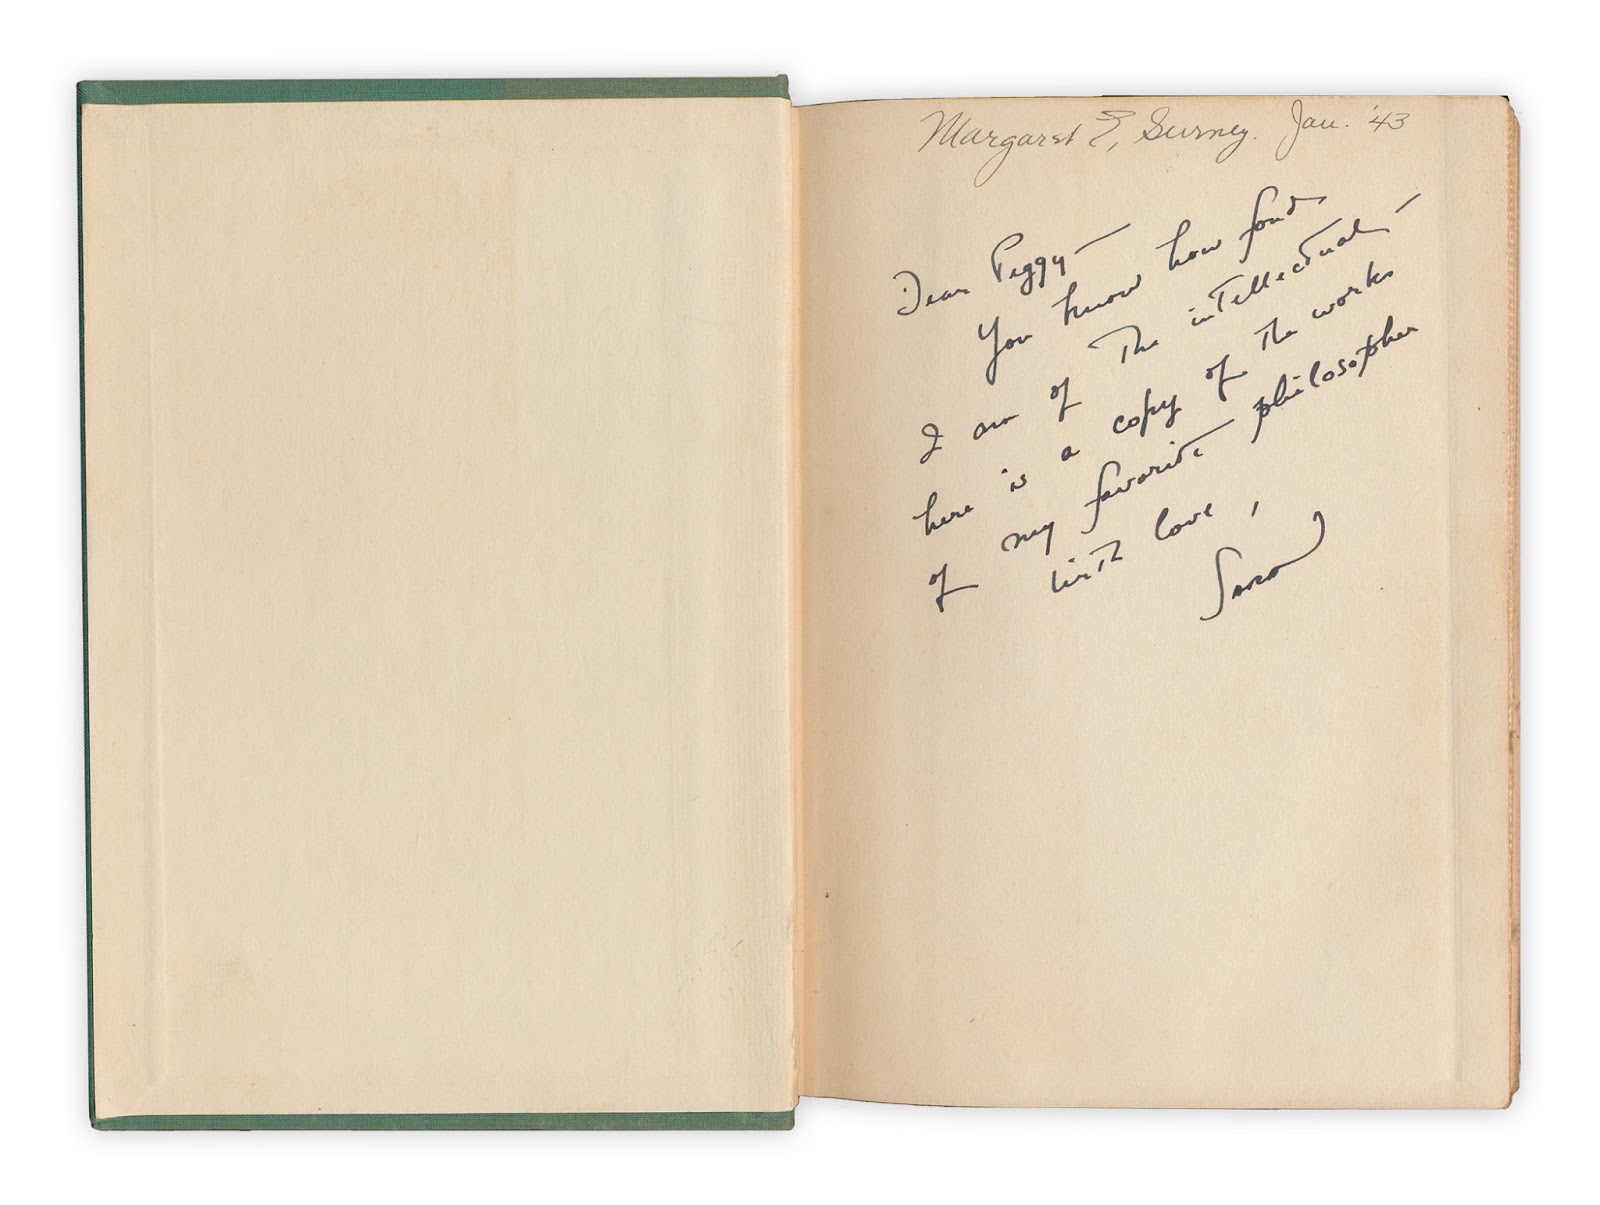 Margaret E. Jan. '43
Dear Peggy —
You know how fond
I am of the intellectual —
here is a copy of the works
of my favorite philosopher
with love,